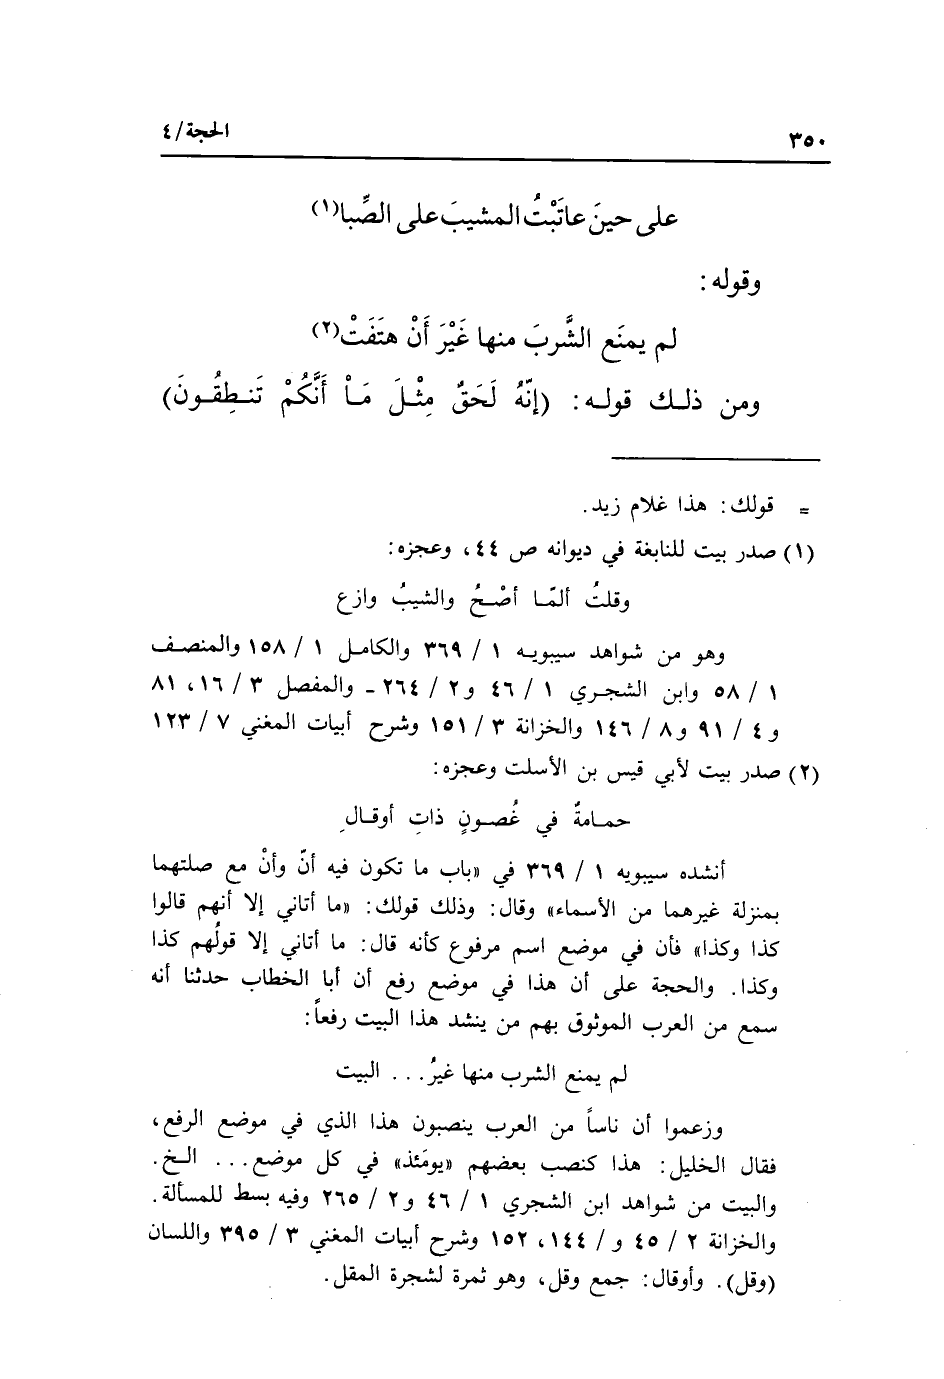 ٣٥٠ الحجة/ ٤
على حينَ عاتَبْتُ المشيبَ على الصِّبا(١)
وقوله:
لم يمنَع الشَّربَ منها غَيْرَ أَنْ هتَفَتْ(٢)
ومن ذلـك قولـه: (إنّهُ لَحَقٌ مِثْـلَ مَـاْ أَنَّكُمْ تَنـطِقُـونَ)
= قولك: هذا غلام زيد.
(١) صدر بيت للنابغة في ديوانه ص ٤٤، وعجزه:
وقلتُ ألمّـا أصْـحُ والشيبُ وازع
وهو من شواهد سيبويـه ١ / ٣٦٩ والكامـل ١ / ١٥٨ والمنصـف
١ / ٥٨ وابن الشجـري ١ / ٤٦ و٢ / ٢٦٤ ـ والمفصل ٣ / ١٦، ٨١
و٤ / ٩١ و٨ / ١٤٦ والخزانة ٣ / ١٥١ وشرح أبيات المغني ٧ / ١٢٣
(٢) صدر بيت لأبي قيس بن الأسلت وعجزه:
حمـامةٌ في غُصـونٍ ذاتِ أوقـالِ
أنشده سيبويه ١ / ٣٦٩ في «باب ما تكون فيه أنّ وأنْ مع صلتهما
بمنزلة غيرهما من الأسماء» وقال: وذلك قولك: «ما أتاني إلا أنهم قالوا
كذا وكذا» فأن في موضع اسم مرفوع كأنه قال: ما أتاني إلا قولُهم كذا
وكذا. والحجة على أن هذا في موضع رفع أن أبا الخطاب حدثنا أنه
سمع من العرب الموثوق بهم من ينشد هذا البيت رفعاً:
لم يمنع الشرب منها غيرُ... البيت
وزعموا أن ناساً من العرب ينصبون هذا الذي في موضع الرفع،
فقال الخليل: هذا كنصب بعضهم «يومَئذ» في كل موضع... الـخ.
والبيت من شواهد ابن الشجري ١ / ٤٦ و٢ / ٢٦٥ وفيه بسط للمسألة.
والخزانة ٢ / ٤٥ و / ١٤٤، ١٥٢ وشرح أبيات المغني ٣ / ٣٩٥ واللسان
(وقل). وأوقال: جمع وقل، وهو ثمرة لشجرة المقل.